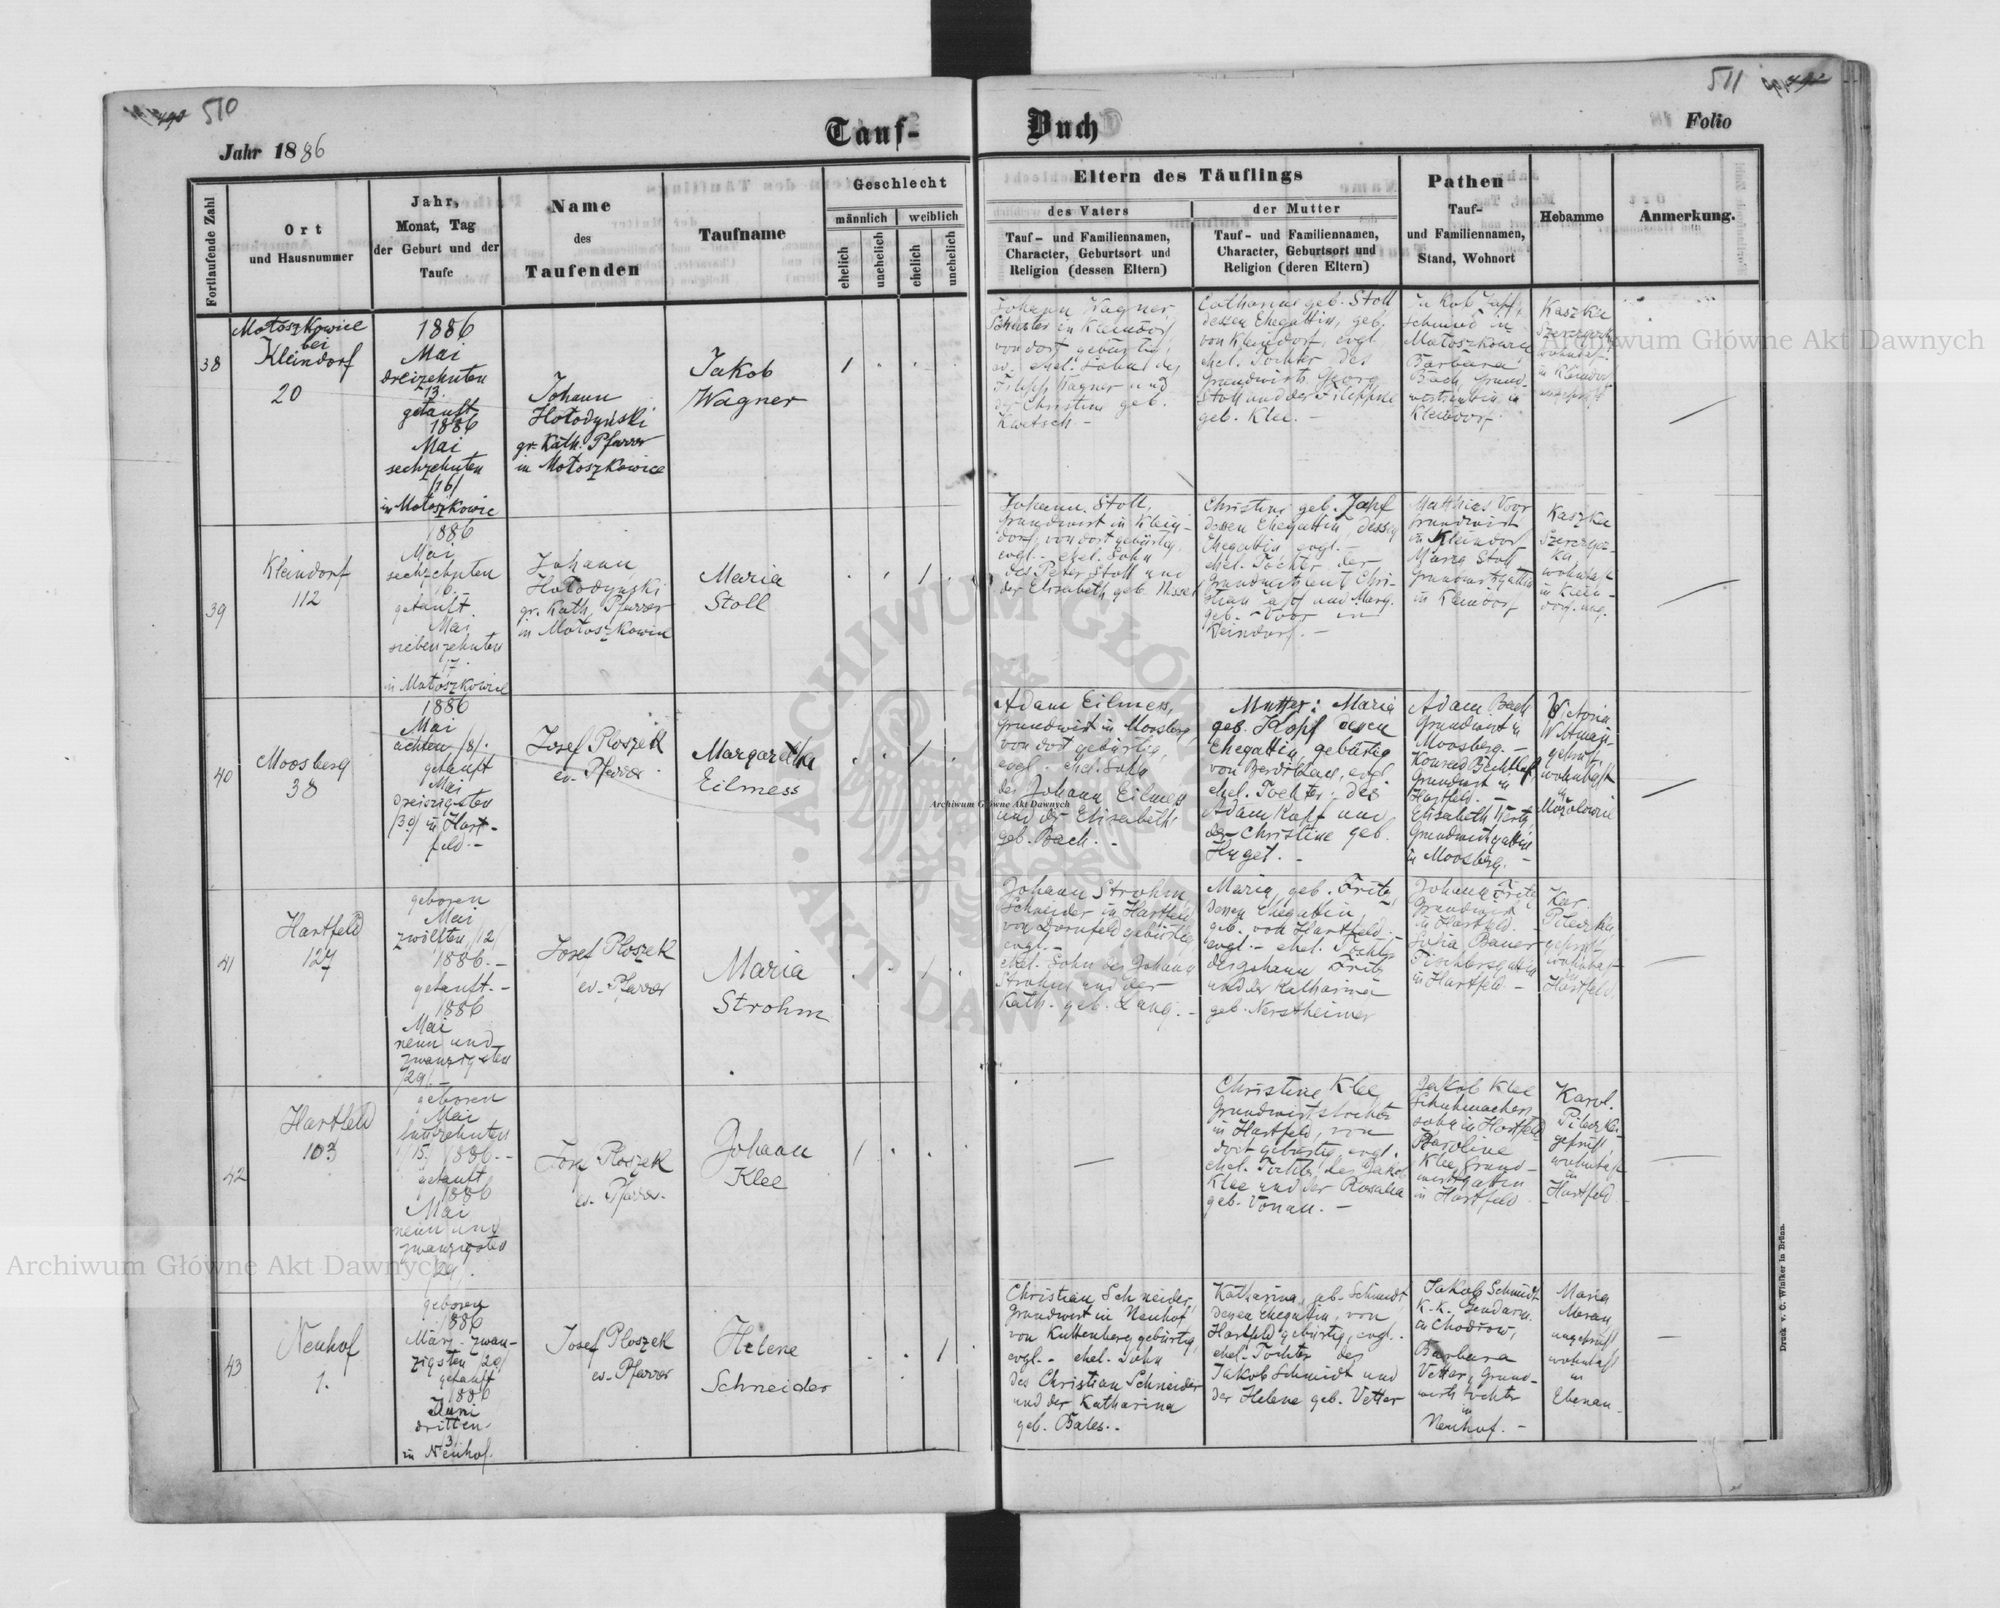 510
511
Jahr 1886
Tauf-
Buch
Folio
Fortlaufende Zahl
Ort
und Hausnummer
Jahr,
Monat, Tag
der Geburt und der
Taufe
Name
des
Taufenden
Taufname
Geschlecht
männlich
weiblich
ehelich
unehelich
ehelich
unehelich
Eltern des Täuflings
des Vaters
Tauf- und Familiennamen,
Character, Geburtsort und
Religion (dessen Eltern)
der Mutter
Tauf- und Familiennamen,
Character, Geburtsort und
Religion (deren Eltern)
Pathen
Tauf-
und Familiennamen,
Stand, Wohnort
Hebamme
Anmerkung.
38
Mołoszkowice
bei
Kleindorf
20
1886
Mai
dreizehnten
13.
getauft
1886
Mai
sechzehnten
/16/
in Mołoszkowic
Johann
Hołodyński
gr. Kath. Pfarrer
in Mołoszkowice
Jakob
Wagner
1
Johann Wagner,
in Kleindorf
von dort gebürtig,
ev. ehel. Sohn des
Filipp Wagner und
der Christine geb.
Catharine geb. Stoll
dessen Ehegattin, geb.
von Kleindorf, evgl.
ehel. Tochter des
Grundwirts Georg
Stoll und der
geb. Klee.
Jakob
Schmied in
Mołoszkowice,
Barbara
Bach, Grund-
in
Kleindorf.
Kaszka
wohnhaft
in Kleindorf
ungeprüft
39
Kleindorf
112
1886
Mai
sechzehnten
16.
getauft
Mai
siebenzehnten
17.
in Mołoszkowice
Johann
Hołodyński
gr. Kath. Pfarrer
in Mołoszkowice
Maria
Stoll
1
Johann Stoll,
Grundwirt in Klein-
dorf, von dort gebürtig,
evgl. - ehel. Sohn
des Peter Stoll und
der Elisabeth geb.
Christine geb. Zapf
dessen Ehegattin, dessen
Ehegattin, evgl. -
ehel. Tochter der
Chri-
stian Zapf und Marg.
geb. Voor in
Kleindorf. -
Matthias Voor
Grundwirt
in Kleindorf
Maria Stoll
Grundwirtsgattin
in Kleindorf
Kaszka
wohnhaft
in Klein-
dorf. ung.
40
Moosberg
38
1886
Mai
achten /8/.
getauft
Mai
dreizigsten
/30/ in Hart-
feld. -
Josef Ploszek
ev. Pfarrer
Margaretha
Eilmess
1
Adam Eilmess,
Grundwirt in Moosberg,
von dort gebürtig,
evgl. - ehel. Sohn
des Johann Eilmess
und der Elisabeth
geb. Bach. -
Mutter: Maria
geb. Kopf dessen
Ehegattin, gebürtig
von evgl.
ehel. Tochter des
Adam Kopf und
der Christine geb.
Huget. -
Adam Bach
Grundwirt in
Moosberg. -
Konrad Bechtloff
Grundwirt in
Hartfeld. -
Elisabeth
Grundwirtsgattin
in Moosberg.
geprüft,
wohnhaft
in
41
Hartfeld
127
geboren
Mai
zwölften /12/
1886. -
getauft. -
1886
Mai
neun und
zwanzigsten
/29/. -
Josef Ploszek
ev. Pfarrer
Maria
Strohm
1
Johann Strohm
Schneider in Hartfeld
von Dornfeld gebürtig,
evgl. -
ehel. Sohn des Johann
Strohm und der
Kath. geb. Lang. -
Maria, geb. Fritz,
dessen Ehegattin,
geb. von Hartfeld. -
evgl. - ehel. Tochter
des Johann Fritz
und der Katharina
geb. Nerstheimer
Johann Fritz
Grundwirt
in Hartfeld. -
Sofia Bauer
Tischlersgattin
in Hartfeld. -
Kar.
geprüft
wohnhaft
in
Hartfeld.
42
Hartfeld
103
geboren
Mai
fünfzehnten
/15/ 1886. -
getauft
1886
Mai
neun und
zwanzigsten
/29/.
Josef Ploszek
ev. Pfarrer.
Johann
Klee
1
Christine Klee,
Grundwirtstochter
in Hartfeld, von
dort gebürtig, evgl.
ehel. Tochter des Jakob
Klee und der Rosalia
geb. Vonau. -
Jakob Klee
Schuhmachers
sohn in Hartfeld
Karoline
Klee, Grund-
wirtsgattin
in Hartfeld
Karol.
geprüft,
wohnhaft
in
Hartfeld
43
Neuhof
1.
geboren
1886
März zwan-
zigsten /20/
getauft
1886
Juni
dritten
3/
in Neuhof.
Josef Ploszek
ev. Pfarrer
Helene
Schneider
1
Christian Schneider,
Grundwirt in Neuhof,
von Kuttenberg gebürtig,
evgl. - ehel. Sohn
des Christian Schneider
und der Katharina
geb. Bales. -
Katharina, geb. Schmidt
dessen Ehegattin, von
Hartfeld gebürtig, evgl. -
ehel. Tochter des
Jakob Schmidt und
der Helene geb. Vetter
Jakob Schmidt
K. K. Gendarm
in Chodrow,
Barbara
Vetter, Grund-
wirts tochter
in
Neuhof. -
Maria
Moran,
ungeprüft
wohnhaft
in
Ebenau
Druck v. C. Winiker in Brünn.
Archiwum Główne Akt Dawnych
Archiwum Główne Akt Dawnych
Archiwum Główne Akt Dawnych
ARCHIWUM GŁÓWNE AKT DAWNYCH